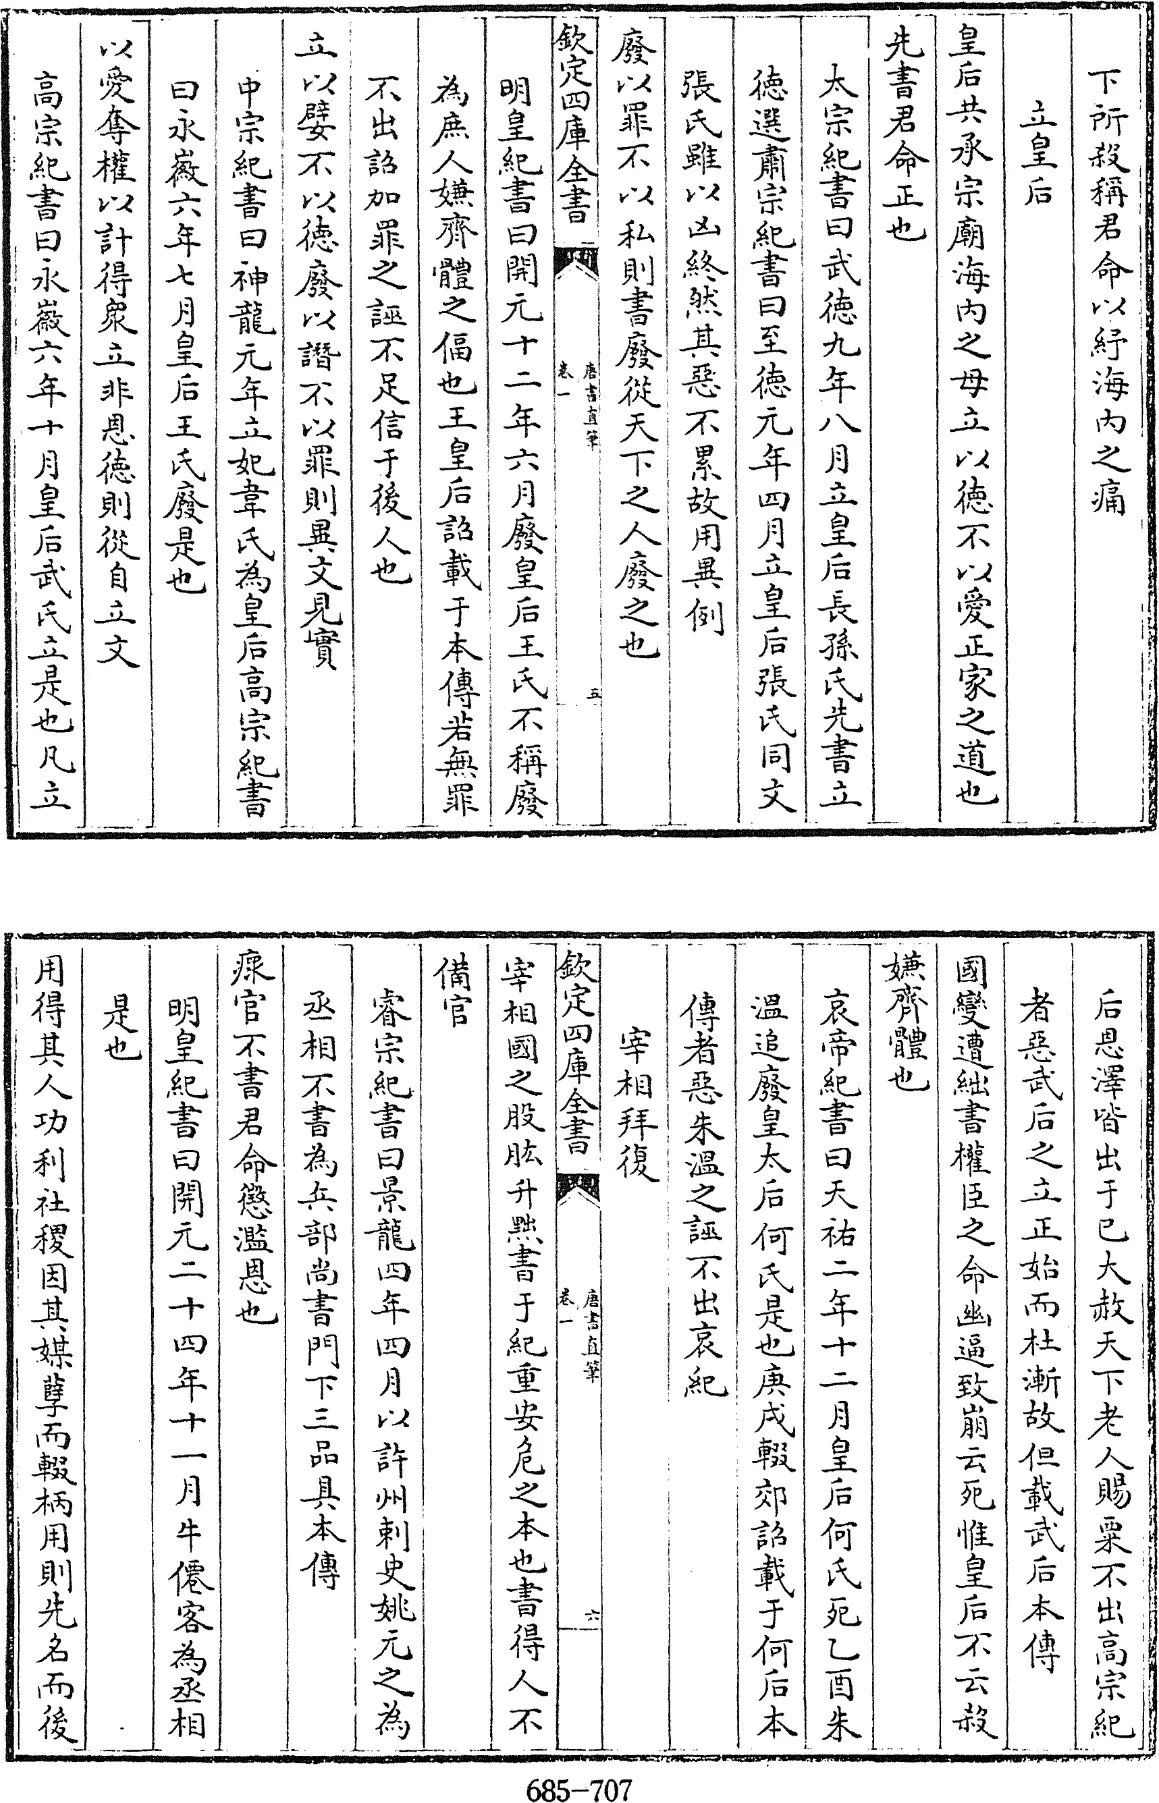 下所殺稱君命以紓海内之痛
立皇后
皇后共承宗廟海内之母立以徳不以愛正家之道也
先書君命正也
太宗紀書曰武徳九年八月立皇后長孫氏先書立
徳選肅宗紀書曰至徳元年四月立皇后張氏同文
張氏雖以凶終然其惡不累故用異例
廢以罪不以私則書廢從天下之人廢之也
欽定四庫全書
唐書直筆
卷一
五
明皇紀書曰開元十二年六月廢皇后王氏不稱廢
為庶人嫌齊體之偪也王皇后詔載于本傳若無罪
不出詔加罪之誣不足信于後人也
立以嬖不以徳廢以譖不以罪則異文見實
中宗紀書曰神龍元年立妃韋氏為皇后高宗紀書
曰永嶶六年七月皇后王氏廢是也
以愛奪權以計得衆立非恩徳則從自立文
高宗紀書曰永嶶六年十月皇后武氏立是也凡立
后恩澤皆出于已大赦天下老人賜粟不出高宗紀
者惡武后之立正始而杜漸故但載武后本傳
國變遭絀書權臣之命幽逼致崩云死惟皇后不云殺
嫌齊體也
哀帝紀書曰天祐二年十二月皇后何氏死乙酉朱
溫追廢皇太后何氏是也庚戌輟郊詔載于何后本
傳者惡朱溫之誣不出哀紀
宰相拜復
欽定四庫全書
唐書直筆
卷一
六
宰相國之股肱升黜書于紀重安危之本也書得人不
備官
睿宗紀書曰景龍四年四月以許州刺史姚元之為
丞相不書為兵部尚書門下三品具本傳
瘝官不書君命懲濫恩也
明皇紀書曰開元二十四年十一月牛僊客為丞相
是也
用得其人功利社稷因其媒孽而輟柄用則先名而後
685-707